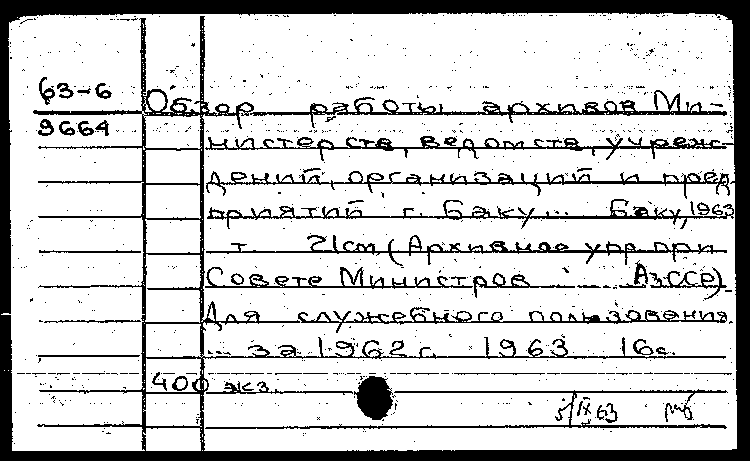 63-6
9664
Обзор работы архивов Ми-
нистерств, ведомств, учреж-
дений, организаций и пред-
приятий г. Баку... Баку, 1963
т. 21см (Архивное упр. при
Совете Министров АзССР).
Для служебного пользования
... за 1962 г. 1963 16с.
400 экз.
5/IX 63